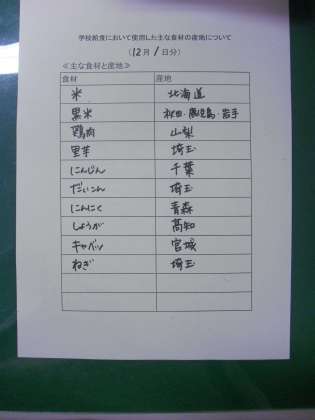 学校給食において使用した主な食材の産地について
(12月1日分)
≪主な食材と産地≫
食材 産地
米 北海道
黒米 秋田・鹿児島・岩手
鶏肉 山梨
里芋 埼玉
にんじん 千葉
だいこん 埼玉
にんにく 青森
しょうが 高知
キャベツ 宮城
ねぎ 埼玉